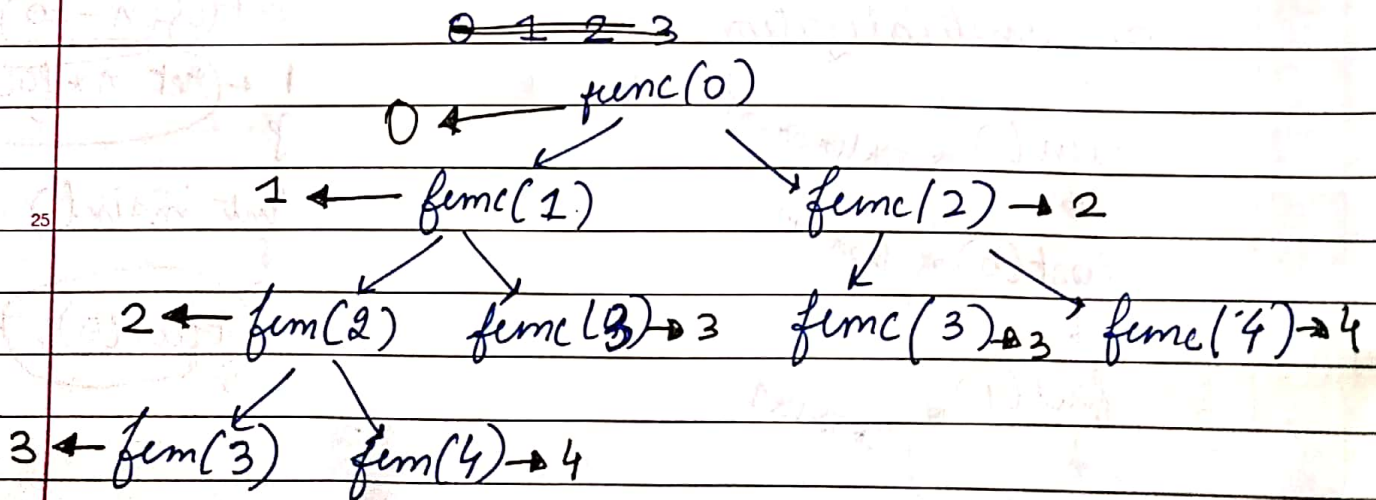 0 1 2 3
func(0)
0
1 func(1) func(2) → 2
25
2 fun(2) func(3) → 3 func(3) → 3 func(4) → 4
3 fun(3) fun(4) → 4